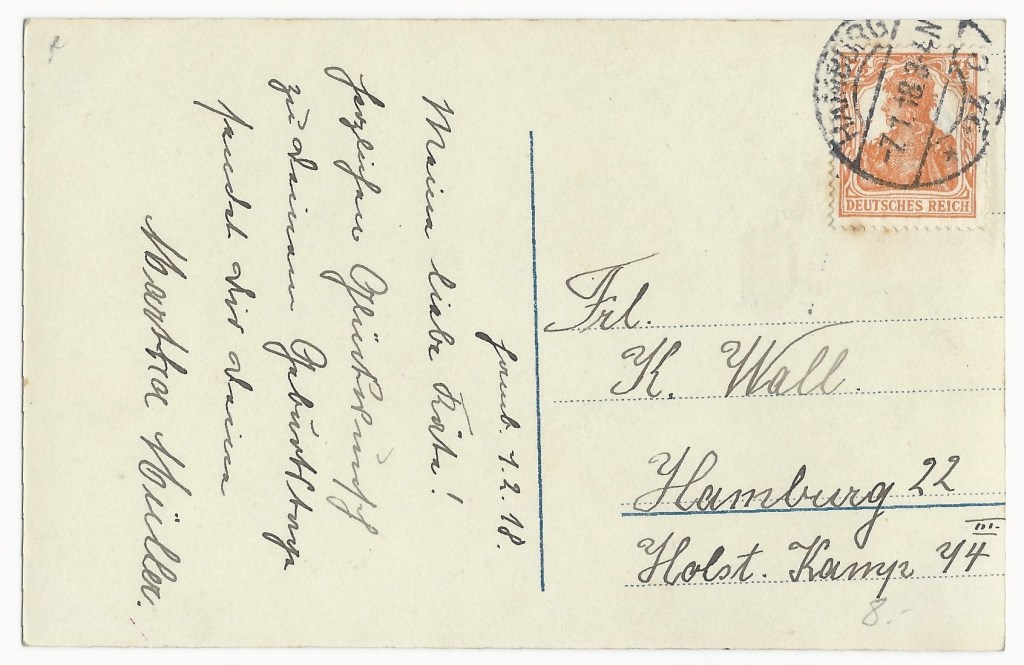 Hamb. 1.2.18.
Meine liebe Käte!
Herzlichen Glückwunsch
zu Deinem Geburtstage
sendet dir deine
Martha Müller.
HAMBURG
-7.1.18.3-4N
DEUTSCHES REICH
Frl.
K. Wall.
Hamburg 22
III.
Holst. Kamp 44
8.-